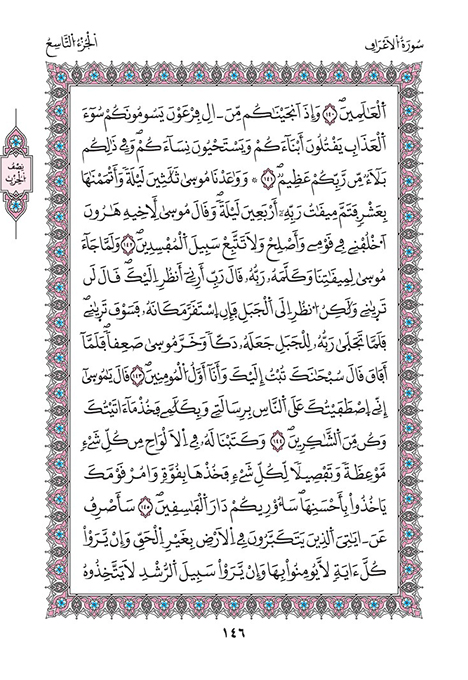 سُورَةُ اُلَاعْرَافِ
اَلْجُزْءُ اُلتَّاسِعُ
نِصْف
اَلْحِزْب
اَلْعَٰلَمِينَۖ ١٤٠ وَإِذَ اَنجَيْنَٰكُم مِّنَ اٰلِ فِرْعَوْنَ يَسُومُونَكُمْ سُوٓءَ
اَلْعَذَابِ يَقْتُلُونَ أَبْنَآءَكُمْ وَيَسْتَحْيُونَ نِسَآءَكُمْۖ وَفِے ذَٰلِكُم
بَلَآءٌ مِّن رَّبِّكُمْ عَظِيمٌۖ ١٤١ ۞ وَوَٰعَدْنَا مُوسَىٰ ثَلَٰثِينَ لَيْلَةً وَأَتْمَمْنَٰهَا
بِعَشْرٍ فَتَمَّ مِيقَٰتُ رَبِّهِۦٓ أَرْبَعِينَ لَيْلَةًۖ وَقَالَ مُوسَىٰ لِأَخِيهِ هَٰرُونَ
اَخْلُفْنِے فِے قَوْمِے وَأَصْلِحْ وَلَا تَتَّبِعْ سَبِيلَ اَلْمُفْسِدِينَۖ ١٤٢ وَلَمَّا جَآءَ
مُوسَىٰ لِمِيقَٰتِنَا وَكَلَّمَهُۥ رَبُّهُۥ قَالَ رَبِّ أَرِنِےٓ أَنظُرِ اِلَيْكَۖ قَالَ لَن
تَرَىٰنِے وَلَٰكِنُ اُنظُرِ اِلَى اَلْجَبَلِ فَإِنِ اِسْتَقَرَّ مَكَانَهُۥ فَسَوْفَ تَرَىٰنِےۖ
فَلَمَّا تَجَلَّىٰ رَبُّهُۥ لِلْجَبَلِ جَعَلَهُۥ دَكّاً وَخَرَّ مُوسَىٰ صَعِقاًۖ فَلَمَّآ
أَفَاقَ قَالَ سُبْحَٰنَكَ تُبْتُ إِلَيْكَ وَأَنَآ أَوَّلُ اُلْمُومِنِينَۖ ١٤٣ قَالَ يَٰمُوسَىٰٓ
إِنِّے اِصْطَفَيْتُكَ عَلَى اَلنَّاسِ بِرِسَٰلَتِے وَبِكَلَٰمِے فَخُذْ مَآ ءَاتَيْتُكَ
وَكُن مِّنَ اَلشَّٰكِرِينَۖ ١٤٤ وَكَتَبْنَا لَهُۥ فِے اِلَالْوَاحِ مِن كُلِّ شَےْءٍ
مَّوْعِظَةً وَتَفْصِيلًا لِّكُلِّ شَےْءٍ فَخُذْهَا بِقُوَّةٍ وَامُرْ قَوْمَكَ
يَاخُذُواْ بِأَحْسَنِهَاۖ سَأُوْرِيكُمْ دَارَ اَلْفَٰسِقِينَۖ ١٤٥ سَأَصْرِفُ
عَنَ اٰيَٰتِيَ اَلذِينَ يَتَكَبَّرُونَ فِے اِلَارْضِ بِغَيْرِ اِلْحَقِّ وَإِنْ يَّرَوْاْ
كُلَّ ءَايَةٍ لَّا يُومِنُواْ بِهَا وَإِنْ يَّرَوْاْ سَبِيلَ اَلرُّشْدِ لَا يَتَّخِذُوهُ
١٤٦